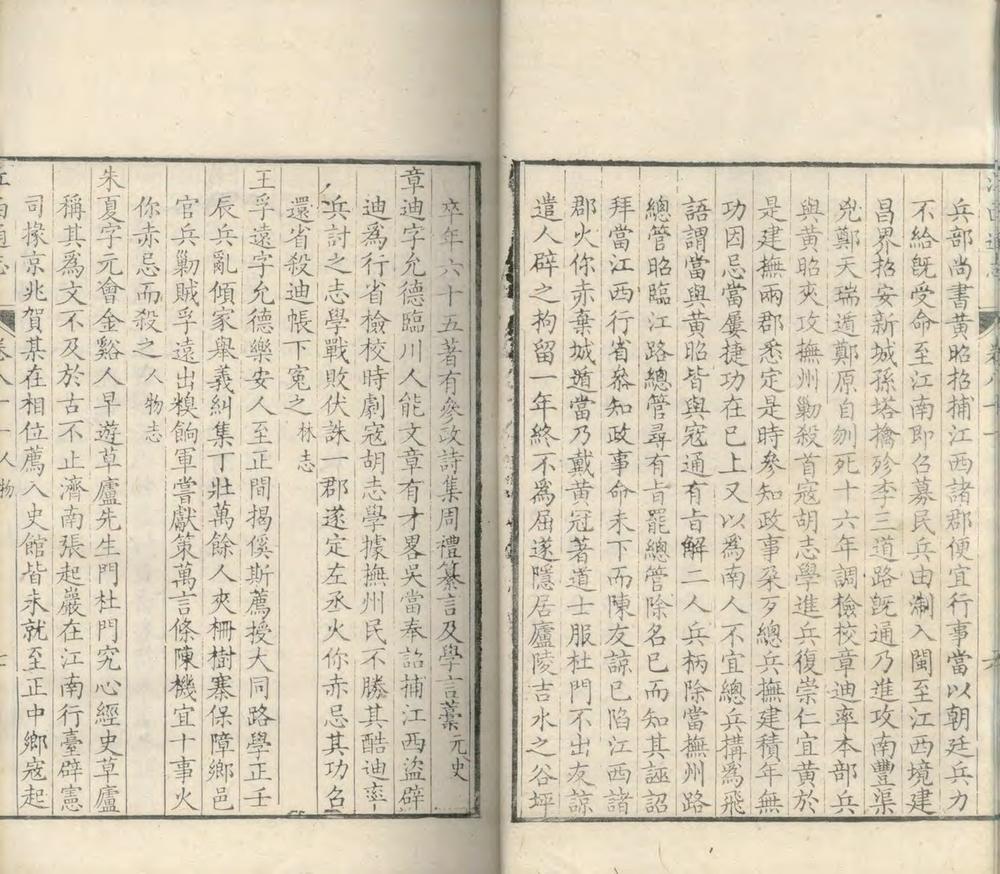 兵部尚書黃昭招捕江西諸郡便宜行事當以朝廷兵力
不給旣受命至江南卽召募民兵由浙入閩至江西境建
昌界招安新城孫塔擒殄李三道路旣通乃進攻南豐渠
兇鄭天瑞遁鄭原自刎死十六年調檢校章迪率本部兵
與黃昭夾攻撫州勦殺首寇胡志學進兵復崇仁宜黃於
是建撫兩郡悉定是時參知政事朶歹總兵撫建積年無
功因忌當屢捷功在已上又以爲南人不宜總兵搆爲飛
語謂當與黃昭皆與寇通有旨解二人兵柄除當撫州路
總管昭臨江路總管尋有旨罷總管除名已而知其誣詔
拜當江西行省叅知政事命未下而陳友諒已陷江西諸
郡火你赤棄城遁當乃戴黃冠著道士服杜門不出友諒
遣人辟之拘留一年終不爲屈遂隱居廬陵吉水之谷坪
卒年六十五著有叅政詩集周禮纂言及學言藁元史
章迪字允德臨川人能文章有才畧吳當奉詔捕江西盜辟
迪爲行省檢校時劇寇胡志學據撫州民不勝其酷迪率
兵討之志學戰敗伏誅一郡遂定左丞火你赤忌其功召
還省殺迪帳下寃之林志
王孚遠字允德樂安人至正間揭傒斯薦授大同路學正壬
辰兵亂傾家舉義糾集丁壯萬餘人夾柵樹寨保障鄉邑
官兵勦賊孚遠出糗餉軍嘗獻策萬言條陳機宜十事火
你赤忌而殺之人物志
朱夏字元會金谿人早遊草廬先生門杜門究心經史草廬
稱其爲文不及於古不止濟南張起巖在江南行臺辟憲
司掾京兆賀某在相位薦入史館皆未就至正中鄉寇起
卷八十一人物